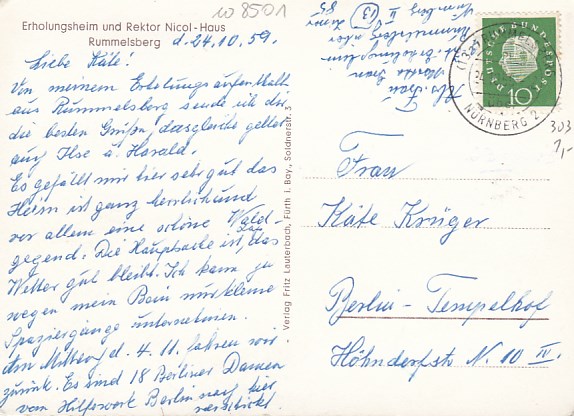 w 8501
Erholungsheim und Rektor Nicol-Haus
Rummelsberg
d. 24.10.59.
Liebe Käte!
Von meinem Erholungsaufenthalt
aus Rummelsberg sende ich dir
die besten Grüße, dasgleiche gelte
auf Ilse u. Harald.
Es gefällt mir hier sehr gut das
Heim ist ganz herrlich und
vor allem eine schöne Wald-
gegend. Die Hauptsache ist, das
Wetter gut bleibt. Ich kann ja
wegen mein Bein nur kleine
Spaziergänge unternehmen.
Am Mittwoch d. 4.11. fahren wir
zurück. Es sind 18 Berliner Damen
vom Hilfswerk Berlin nach hier
verschickt
Abs. Frau
Erholungsheim
Rummelsberg über
Nürnberg II
(13)
Verlag Fritz Lauterbach, Fürth i. Bay., Soldnerstr. 3
DEUTSCHE BUNDESPOST
10
NÜRNBERG 2
303
1,-
Frau
Käte Krüger
Berlin-Tempelhof
Höhndorfstr. N. 10 IV.